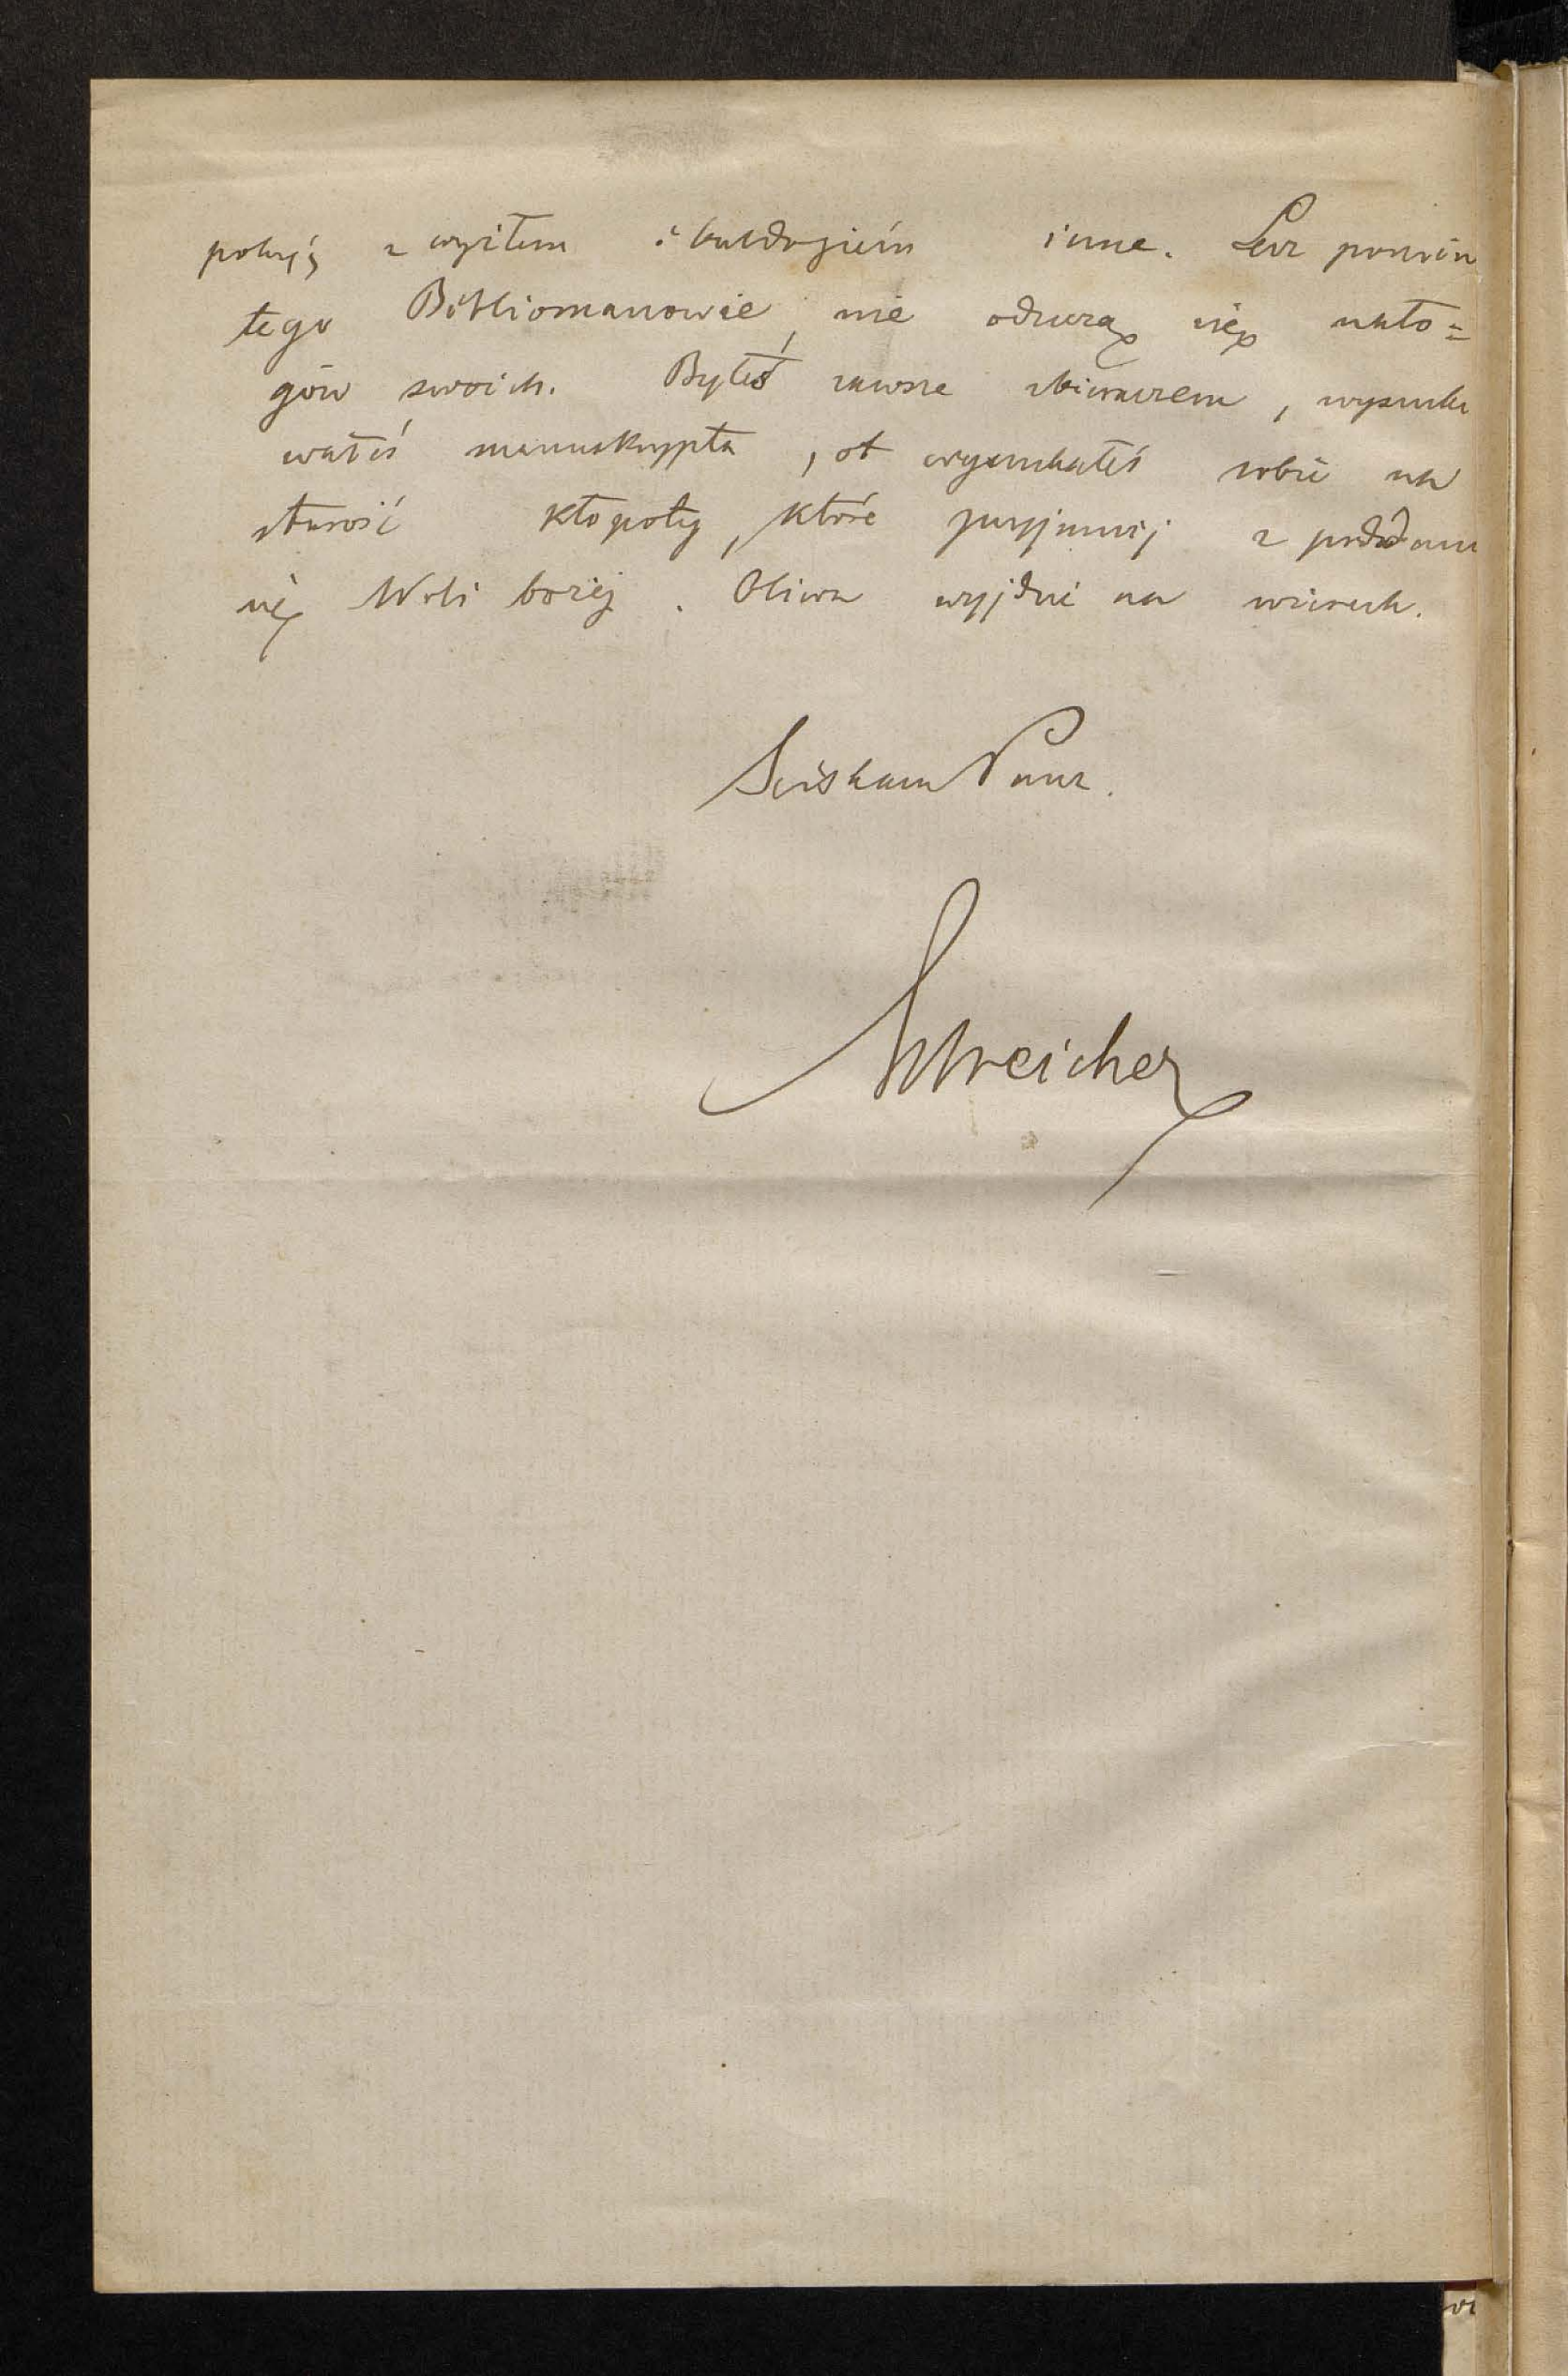 pokój z wyżłem i buldogiem inne. Lecz pomim
tego Bibliomanowie, nie odrzeczą się nało=
gów swoich. Byłeś zawsze zbieraczem, wyszuki
wałeś manuskrypta, ot wyszukałeś sobie na
starość kłopoty, które przyjmij z poddani
się Woli bożej. Oliwa wyjdzie na wierzch.
Ściskam Pana.
Estreicher